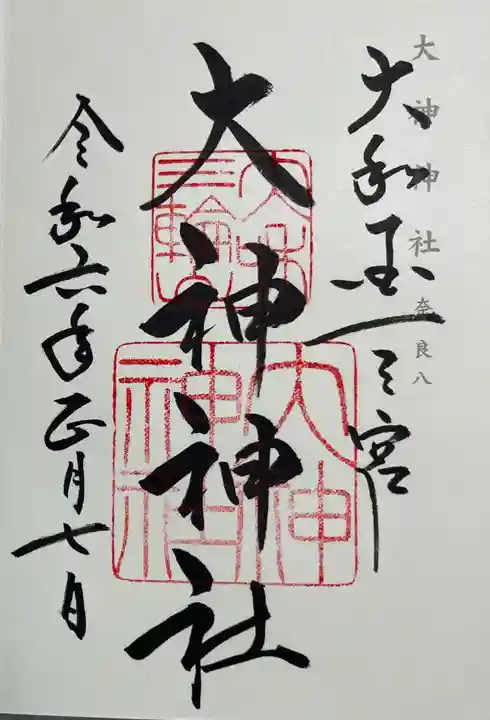 大神神社 奈良八
大和国一之宮
大神神社
大神神社
令和六年正月七日